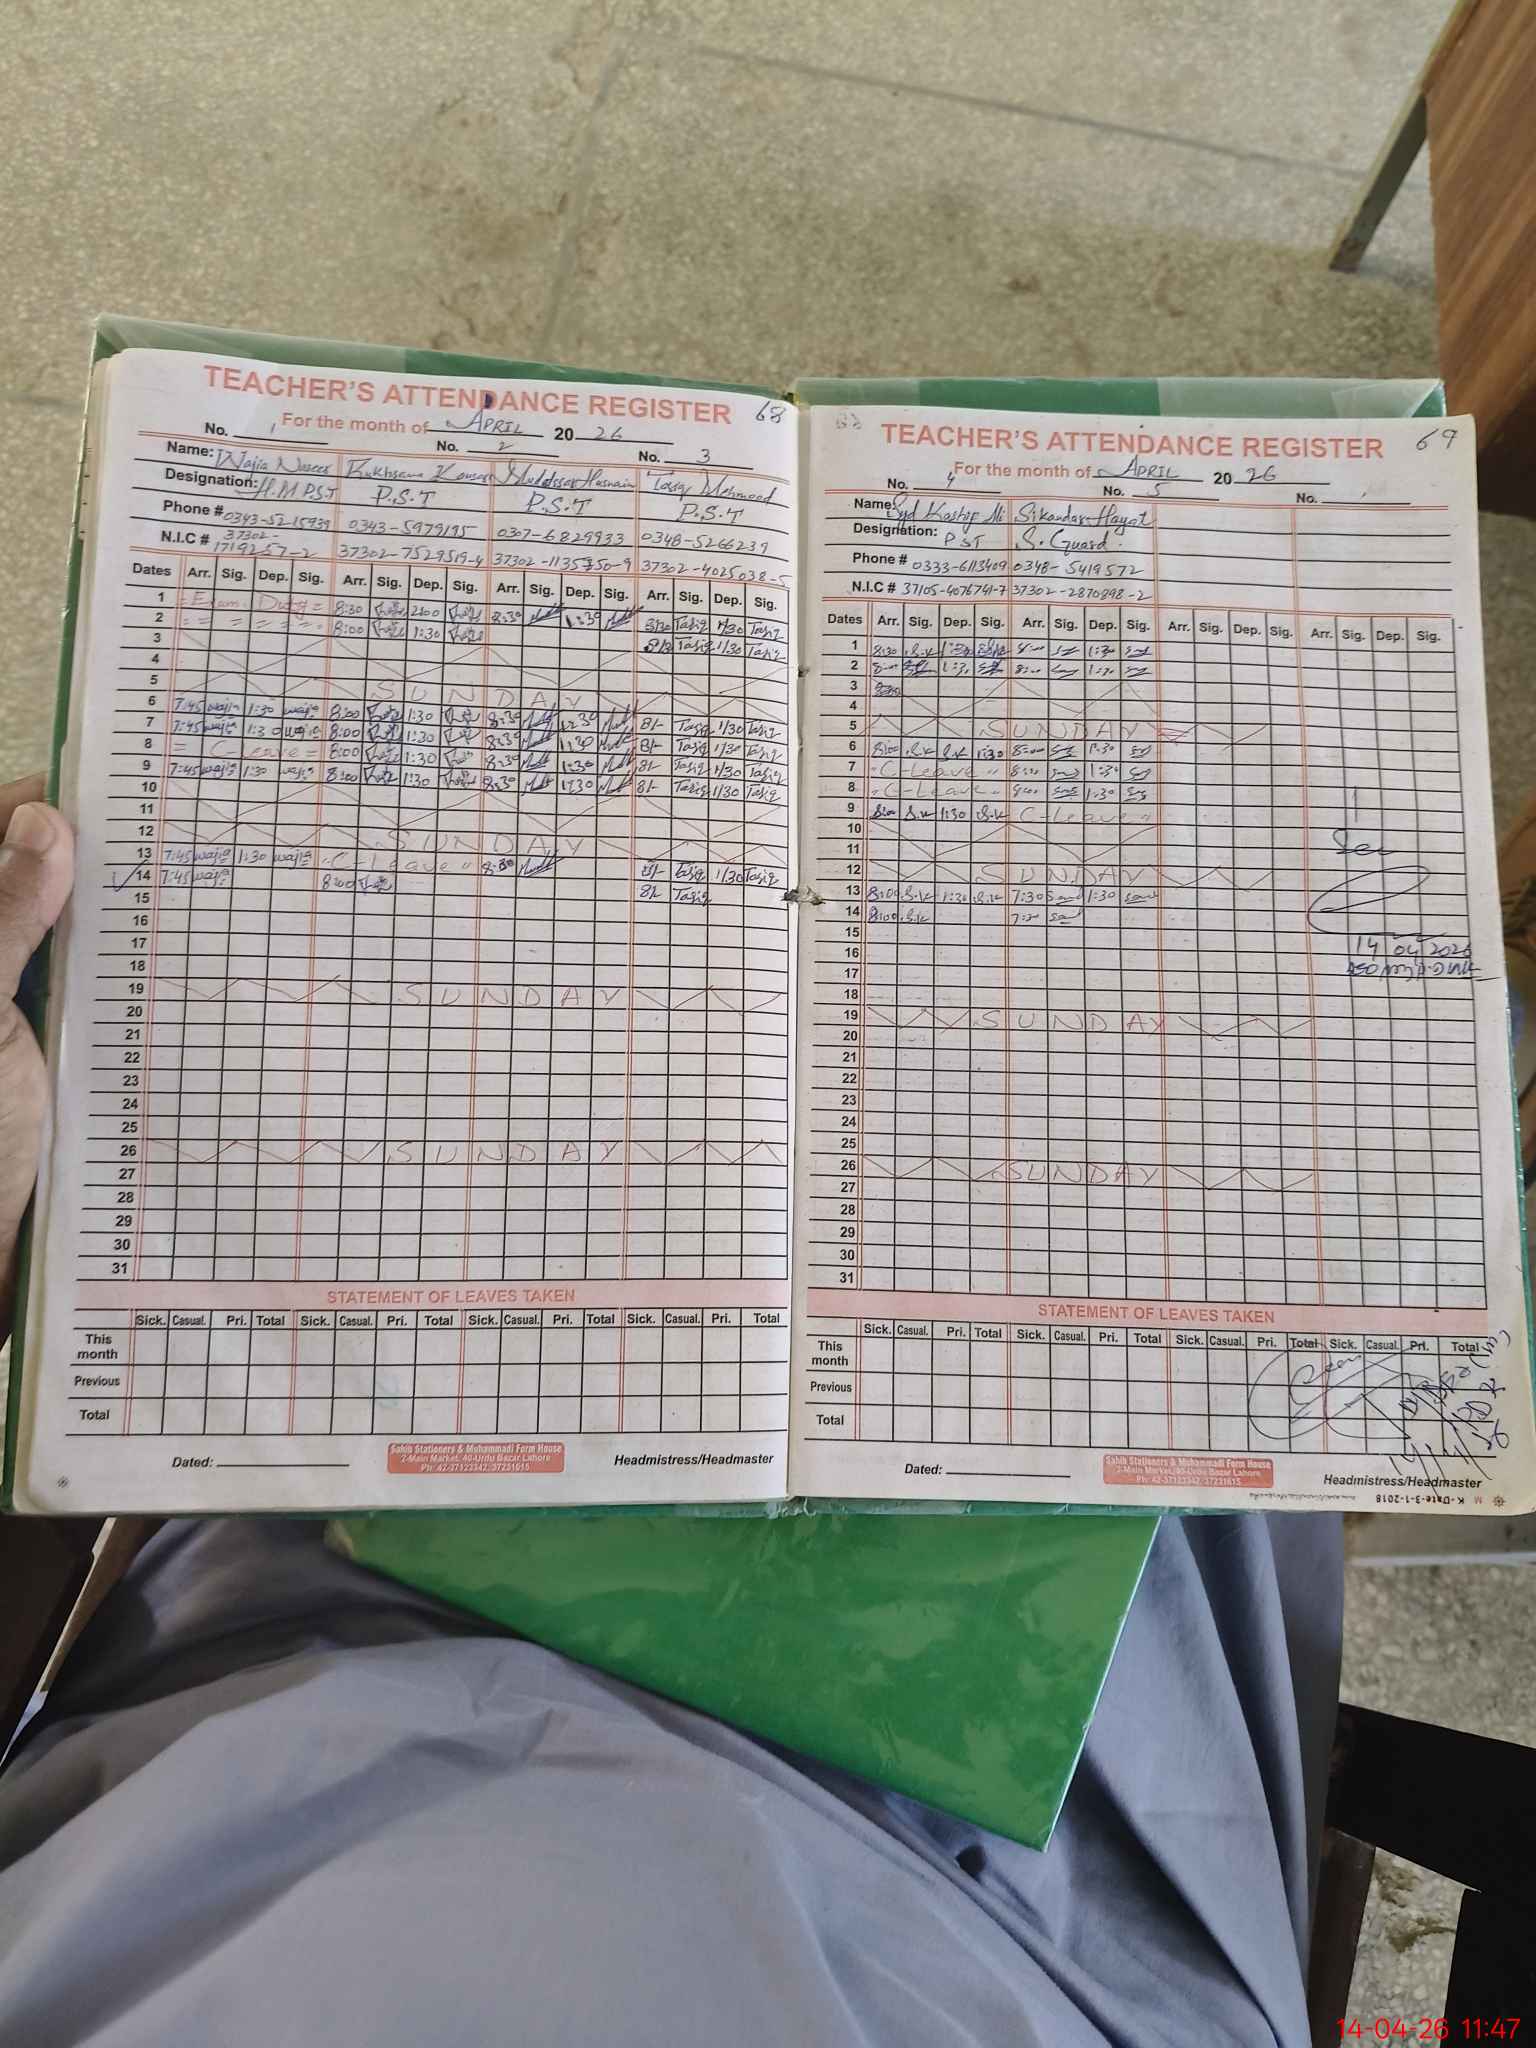 TEACHER'S ATTENDANCE REGISTER 68
For the month of APRIL 20 26
No. 1 No. 2 No. 3
Name: Wajia Naseer Rukhsana Kousar Mudassar Husnain Tariq Mehmood
Designation: H.M P.S.T P.S.T P.S.T P.S.T
Phone # 0343-5215939 0343-5979195 0307-6829933 0348-5266239
N.I.C # 37302-1719257-2 37302-7529519-4 37302-1135750-9 37302-4025038-5
Dates Arr. Sig. Dep. Sig. Arr. Sig. Dep. Sig. Arr. Sig. Dep. Sig. Arr. Sig. Dep. Sig.
1 = Exam Duty = 8:30 2:00 8:30 1:30 Tariq 1/30 Tariq
2 = = = = = 8:00 1:30 Tariq 1/30 Tariq
3
4
5 SUNDAY
6 7:45 wajia 1:30 wajia 8:00 1:30 8:30 1:30 8/- Tariq 1/30 Tariq
7 7:45 wajia 1:30 wajia 8:00 1:30 8:30 1:30 8/- Tariq 1/30 Tariq
8 = C-Leave = 8:00 1:30 8:30 1:30 8/- Tariq 1/30 Tariq
9 7:45 wajia 1:30 wajia 8:00 1:30 8:30 1:30 8/- Tariq 1/30 Tariq
10
11
12 SUNDAY
13 7:45 wajia 1:30 wajia "C-Leave" 8:30 8/- Tariq 1/30 Tariq
14 7:45 wajia 8:00 8/- Tariq
15
16
17
18
19 SUNDAY
20
21
22
23
24
25
26 SUNDAY
27
28
29
30
31
STATEMENT OF LEAVES TAKEN
Sick. Casual. Pri. Total Sick. Casual. Pri. Total Sick. Casual. Pri. Total Sick. Casual. Pri. Total
This month
Previous
Total
Dated:
Sahib Stationers & Muhammadi Form House
2-Main Market, 40-Urdu Bazar Lahore
Ph: 42-37123342, 37231615
Headmistress/Headmaster
TEACHER'S ATTENDANCE REGISTER 69
For the month of APRIL 20 26
No. 4 No. 5 No.
Name: Syd Kashif Ali Sikandar Hayat
Designation: PST S. Guard.
Phone # 0333-6113409 0348-5419572
N.I.C # 37105-4076741-7 37302-2870898-2
Dates Arr. Sig. Dep. Sig. Arr. Sig. Dep. Sig. Arr. Sig. Dep. Sig. Arr. Sig. Dep. Sig.
1 8:30 S.K 1:30 8:00 1:30
2 8:00 1:30 8:00 1:30
3
4
5 SUNDAY
6 8:00 S.K S.K 1:30 8:00 1:30
7 "C-Leave" 8:00 1:30
8 "C-Leave" 8:00 1:30
9 8:00 S.K 1:30 S.K C-Leave"
10
11
12 SUNDAY
13 8:00 S.K 1:30 S.K 7:30 1:30
14 8:00 S.K 7:30
14/04/2026
15
16
17
18
19 SUNDAY
20
21
22
23
24
25
26 SUNDAY
27
28
29
30
31
STATEMENT OF LEAVES TAKEN
Sick. Casual. Pri. Total Sick. Casual. Pri. Total Sick. Casual. Pri. Total Sick. Casual. Pri. Total
This month
Previous
Total
Seen
Dated:
Sahib Stationers & Muhammadi Form House
2-Main Market, 40-Urdu Bazar Lahore
Ph: 42-37123342, 37231615
Headmistress/Headmaster
K-Date-3-1-2018
14-04-26 11:47